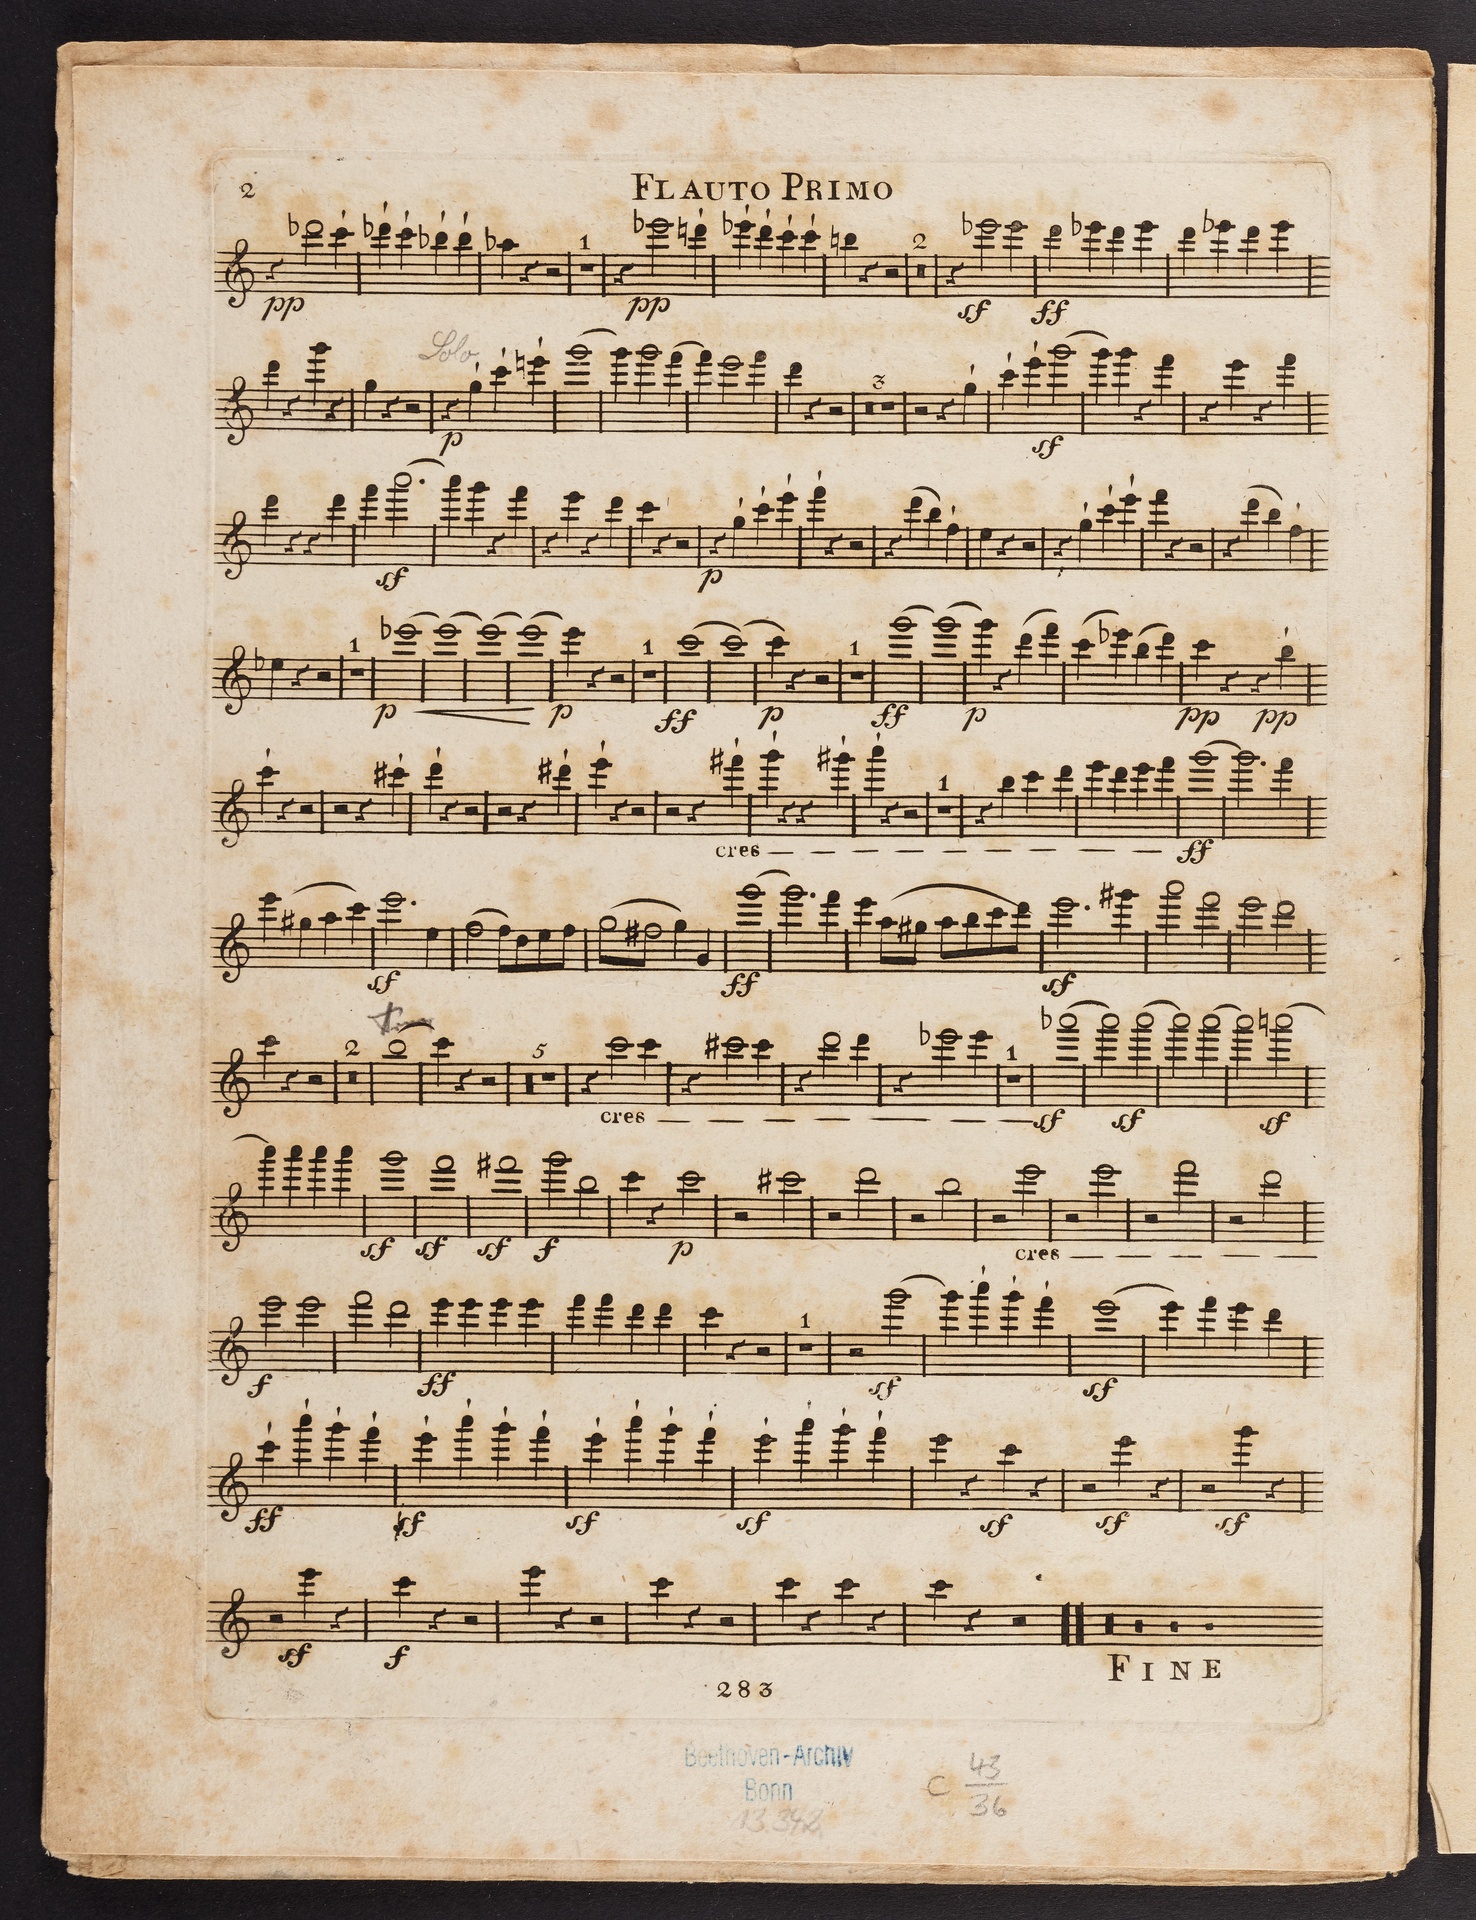 2 FLAUTO PRIMO
1 2
pp pp sf ff
Solo
3
p sf
sf p
1 1 1
p p ff p ff p pp pp
1
cres ff
sf ff sf
2 5 1
cres sf sf sf
sf sf sf f p cres
1
f ff sf sf
ff sf sf sf sf sf sf
sf f
FINE
283
Beethoven-Archiv
Bonn
C 43
36